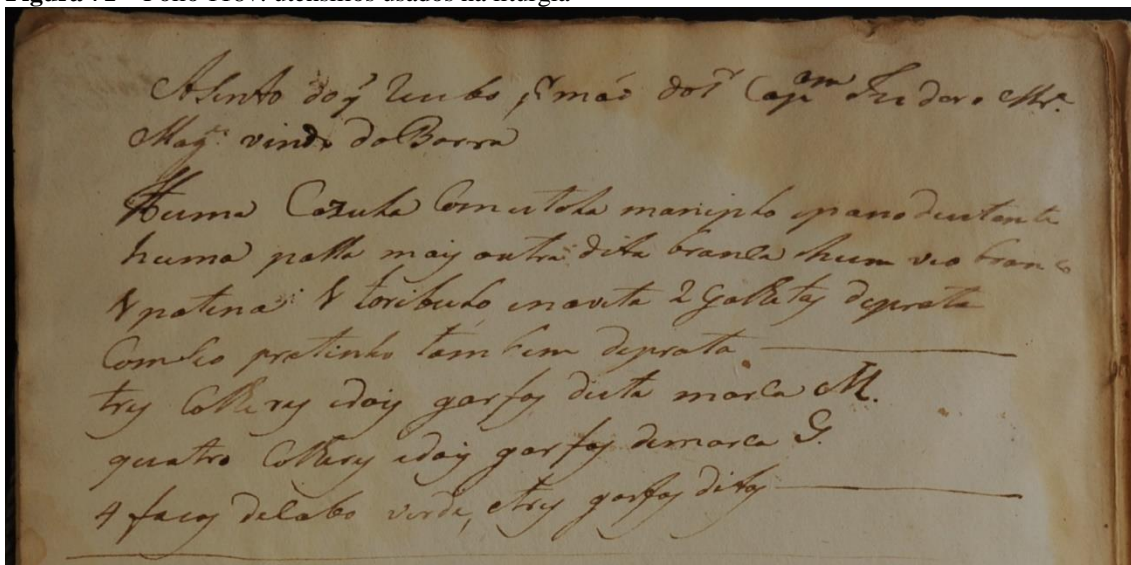 Asento do q̃ Recebo p.r mão do S.r Cap.am Izidoro Mr.a
Mag.es vindo da Barra
Huma Cazula Com estola manipolo epano deestante
huma palla mais outra dita branca hum veo branco
patena toribulo enaveta 2 Galhetas deprata
Comseo pratinho também deprata
tres Colheres edois garfos desta marca M.
quatro Colheres edois garfos demarca G.
4 facas delabo verde, etres garfos ditos